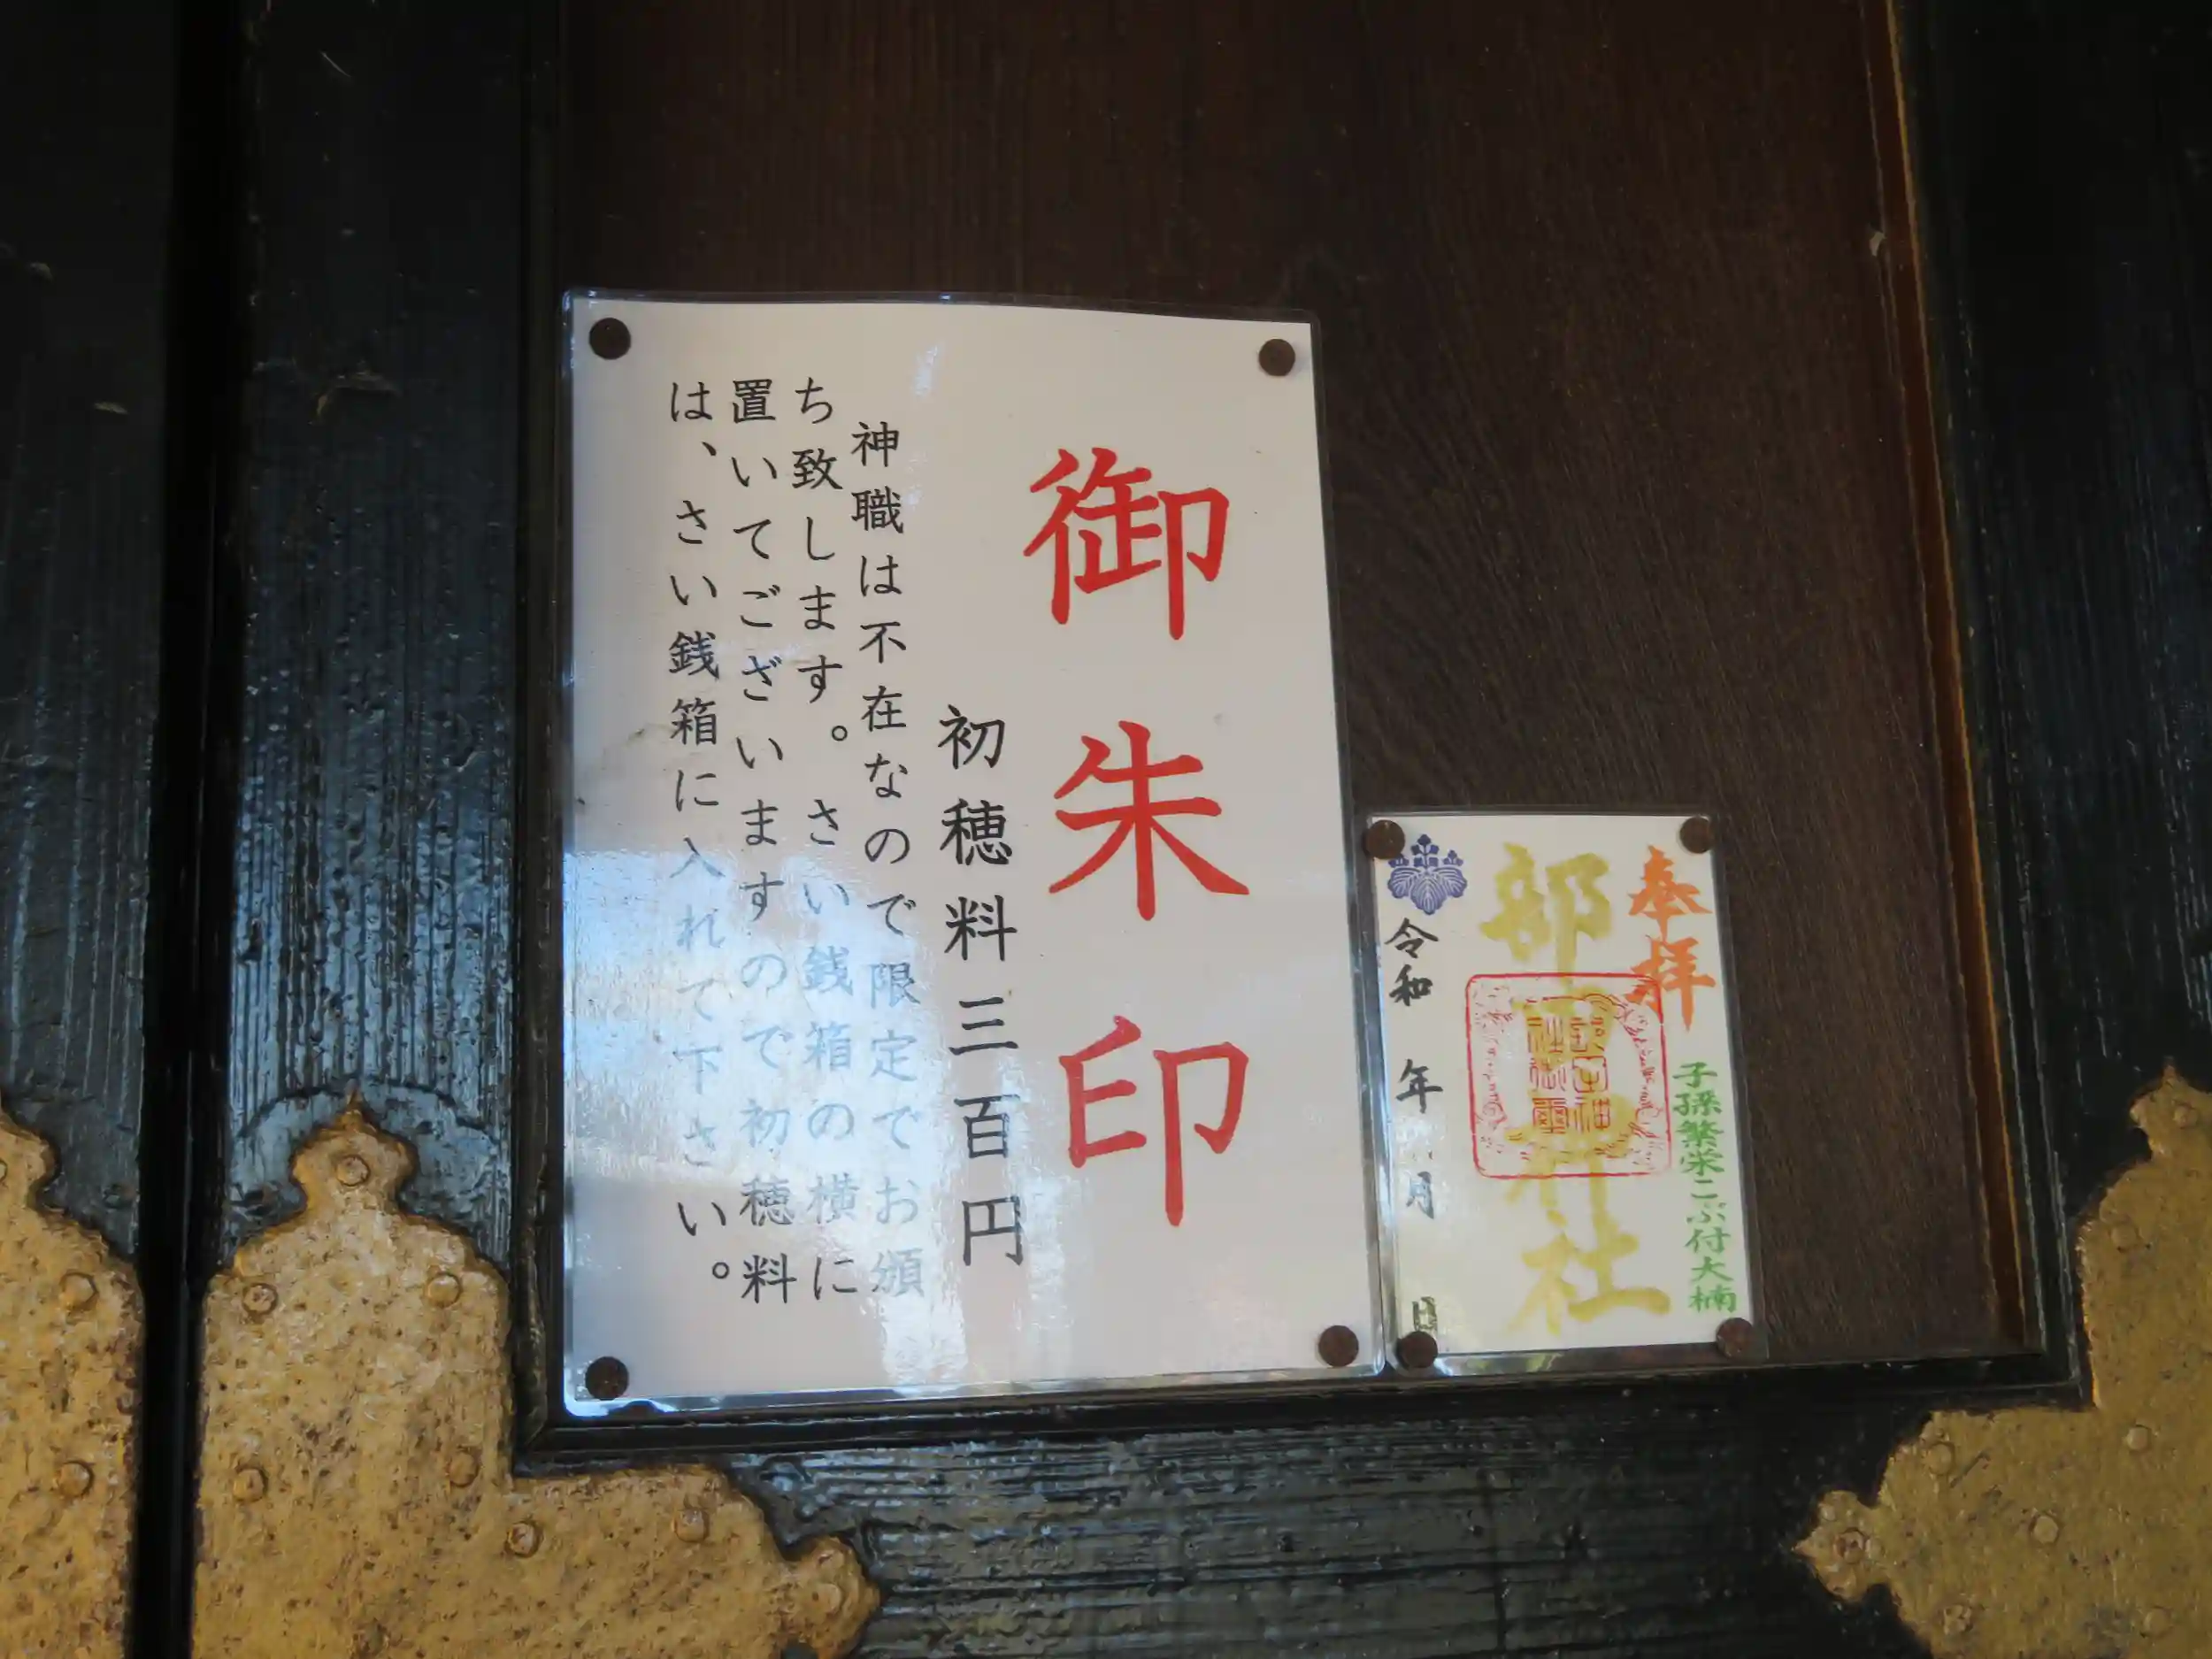 御朱印
初穂料三百円
神職は不在なので限定でお頒
ち致します。さい銭箱の横に
置いてございますので初穂料
は、さい銭箱に入れて下さい。
奉拝
子孫繁栄こぶ付大楠
部
神社
令和 年 月 日